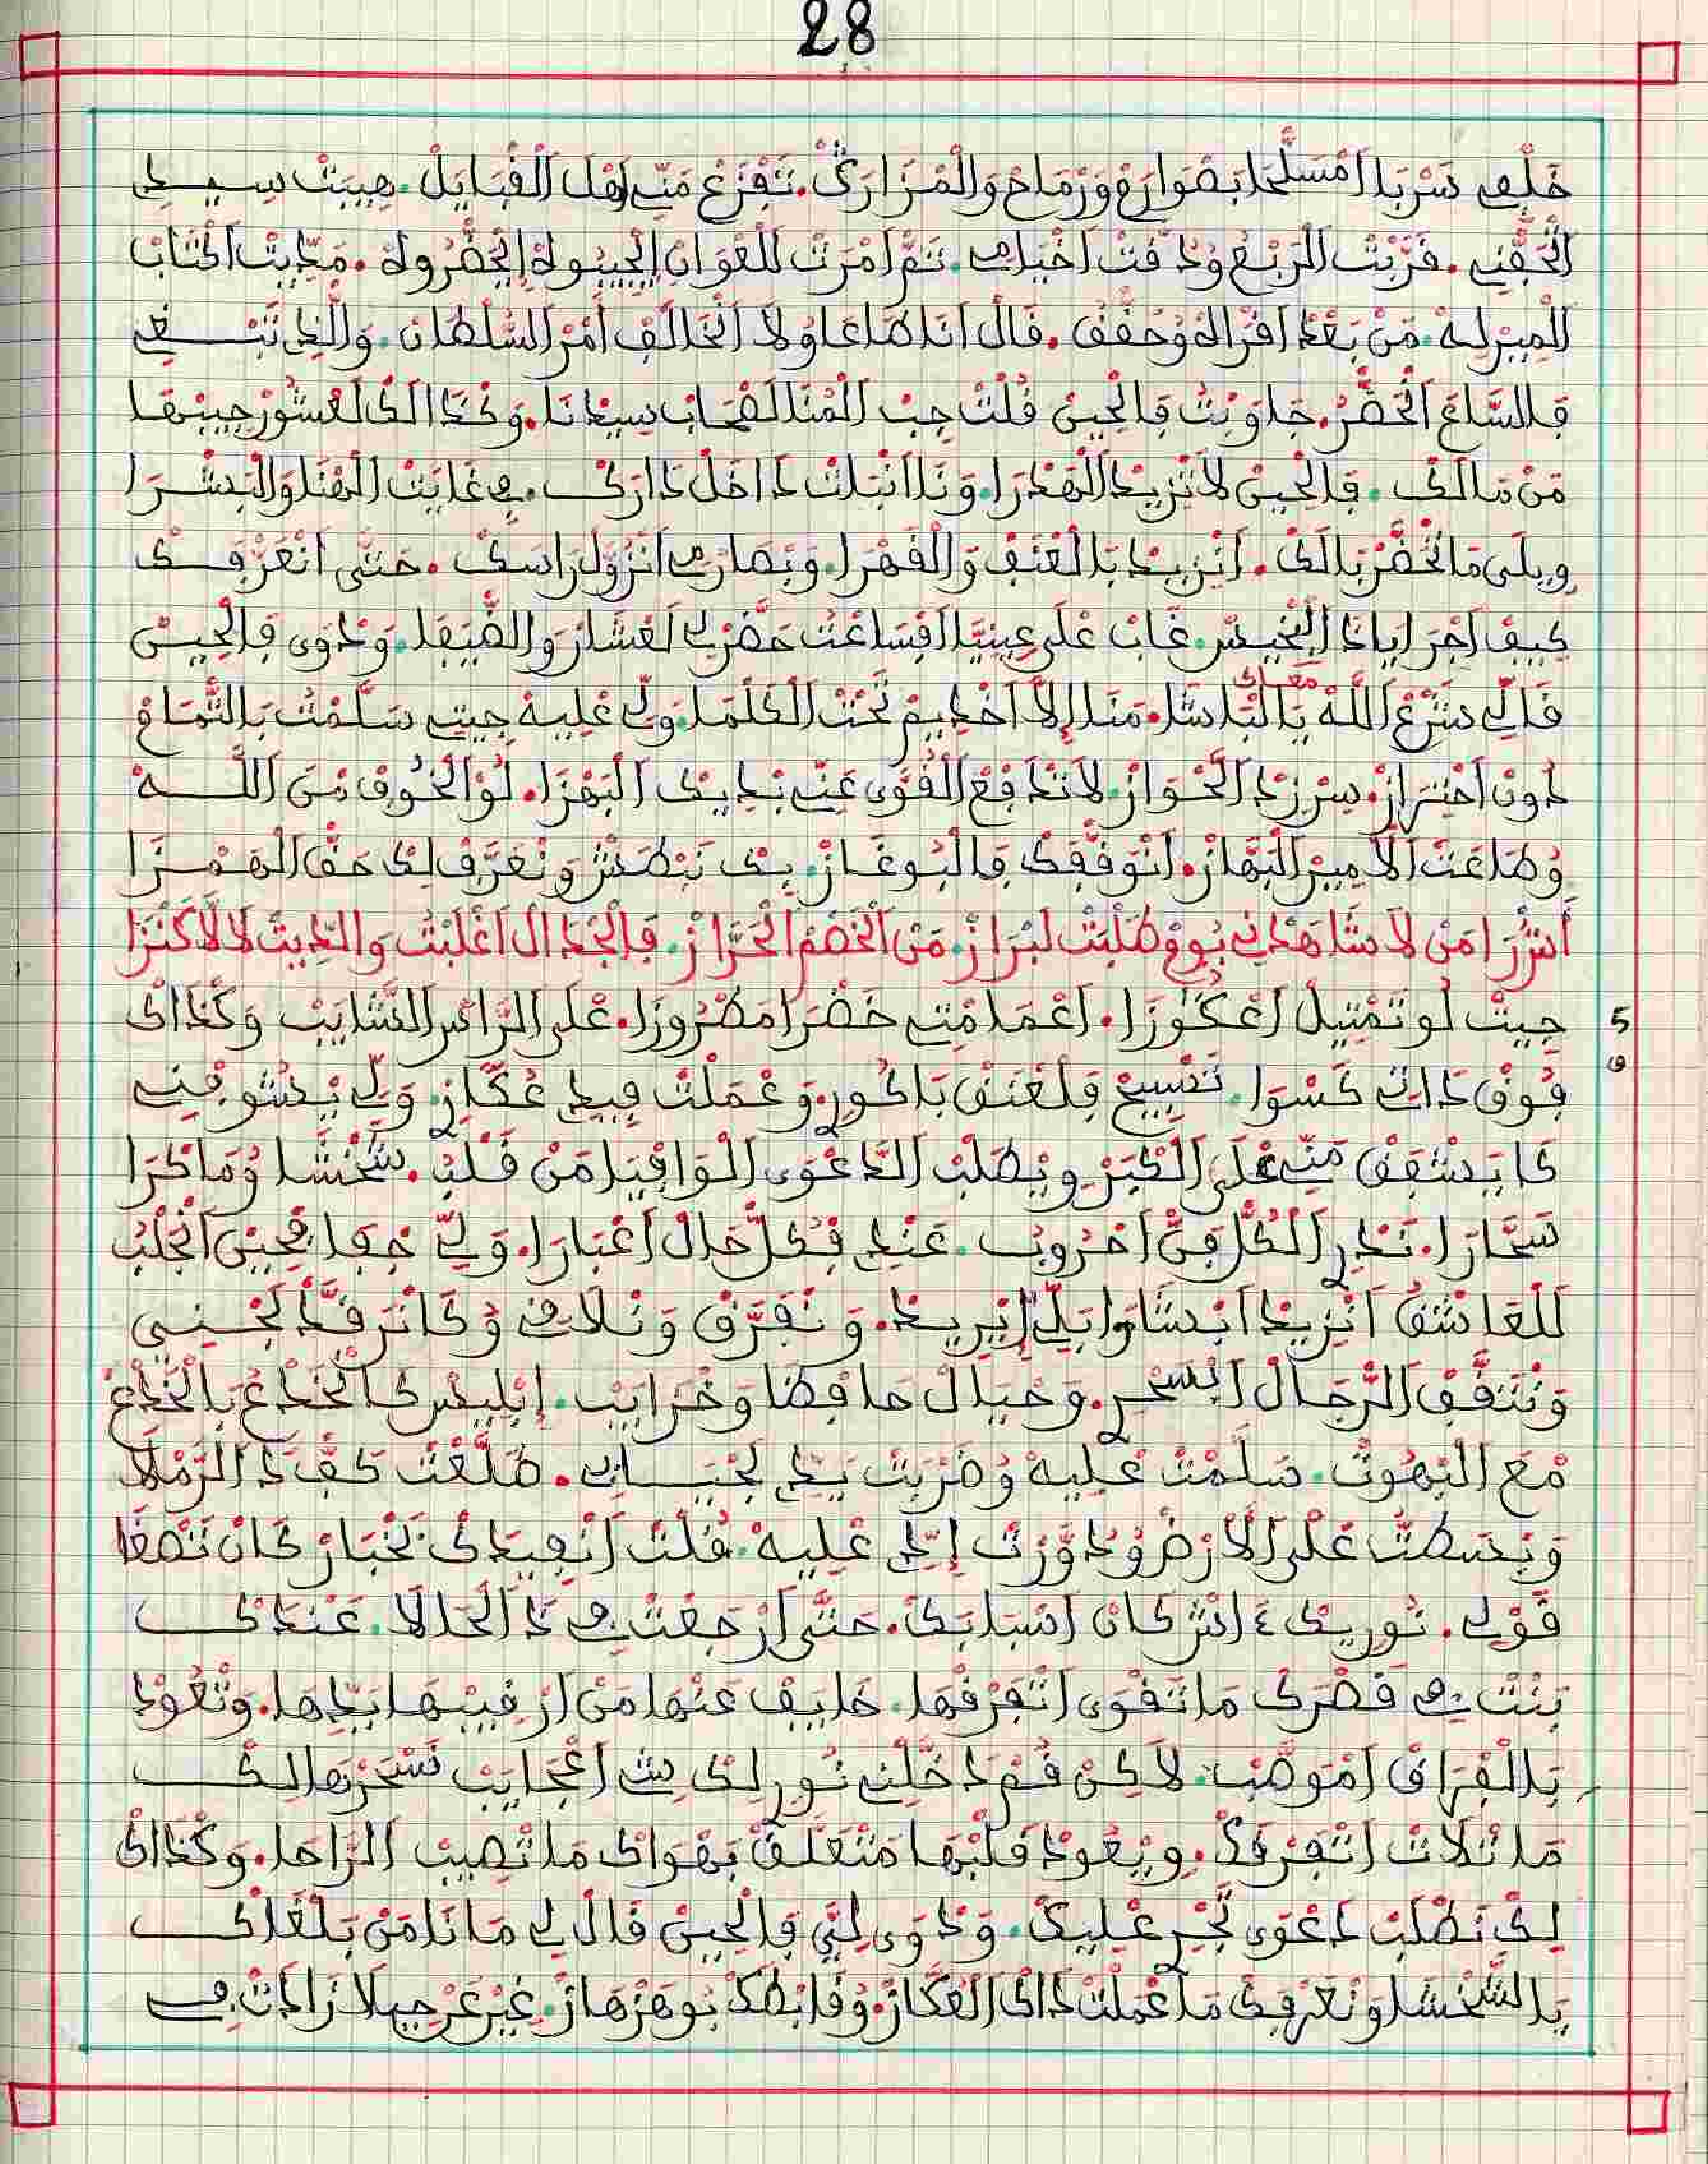 28
خلفي سربا امسلحا بصوارم ورماح والمزارك. تفزع مني اهل القبايل. هيبت سيدي
الحفني. قربت الربع ودفت اخيامي. تم امرت للعوان الجيبوله الحضروله. مديت الكتاب
للمير ليه. من بعد اقراه وحقق. قال انا طاعا ولا انخالف امر السلطان. والذي تبغي
فالساع انحضر. جاوبت فالحين قلت جب المنا لقصاب سيدنا. وكذالك لعشور جيبها
من مالك. فالحين لا تزيد الهدرا. ونا انباث داخل دارك. في غايت الهنا والبشرا
ويلى ما تحضر بالك. انزيد بالعنف والقهرا. وبصارمي انزول راسك. حتى انعرفك
كيف اجرا ياذا البخيس. غاب على عينيا افساعت حضر لي لعشار والضيفا. ودوى فالحين
قالي شرع الله يا الباشا. معاك منا إلا اخديم تحت الكلما. ولي عليه جيتي سلمت بالتمام
دون احتراز. سر زد الحواز. لا تدافع القوى عني بديك البهزا. لو الخوف من الله
وطاعت الامير البهاز. انوقفك فالبوغاز. بك نبطش ونعرف لك حق الهمزا
أشرا من لا شاهدني يوم طلبت لبراز. من الخصم الحراز. فالجدال اغلبت والديت لالا كنزا
جيت لو تمتيل اعكوزا. اعمامتي خضرا مطروزا. على الراس الشايب وكذاك
5
فوق داتي كسوا. تسبيح فلعنق باكور. وعملت فيدي عكاز. ولي يشوفني
كا يشفق مني على الكبر ويطلب الدعوى الوافيا من قلب. شخشا وماكرا
سحارا. ندري الكل فن احروب. عندي فكل حال اعبارا. ولي جفا فحين انجلب
للعاشق انزيد ابشاو ايلي إيريد. ونفرق ونلاقي وكانرقد لجني
ونتقف الرجال ابسحر. وخيال حافظا وخرايب. إبليس كانخدع بالخدع
مع البهوت. سلمت عليه وضربت يدي لجيبي. طلعت كف د الرملا
وبسطت على الارض ودورت إيدي عليه. قلت انعيد لك لخبار كان تصغا
قولي. نوريك اش كان اسبابك. حتى ارجعت في ذا الحالا. عندك
بنت في قصرك ما تقوى اتفرقها. خايف عنها من ارقيبها يديها. وتعود
بالفراق اموصب. لاكن قم دخلني نوري لك شي اعجايب نسحرها لك
ما تلات اتفرقك. ويعود قلبها متعلق بهواك ما تصيب الراحا. وكذاك
لك نطلب دعوى تجري عليك. ودوى لي فالحين قال لي مانا من بلغاك
يا الشخشا ونعرفك ما عملت داك العكاز. وقابطك بوهزهاز. غير عرجيلا زادت في